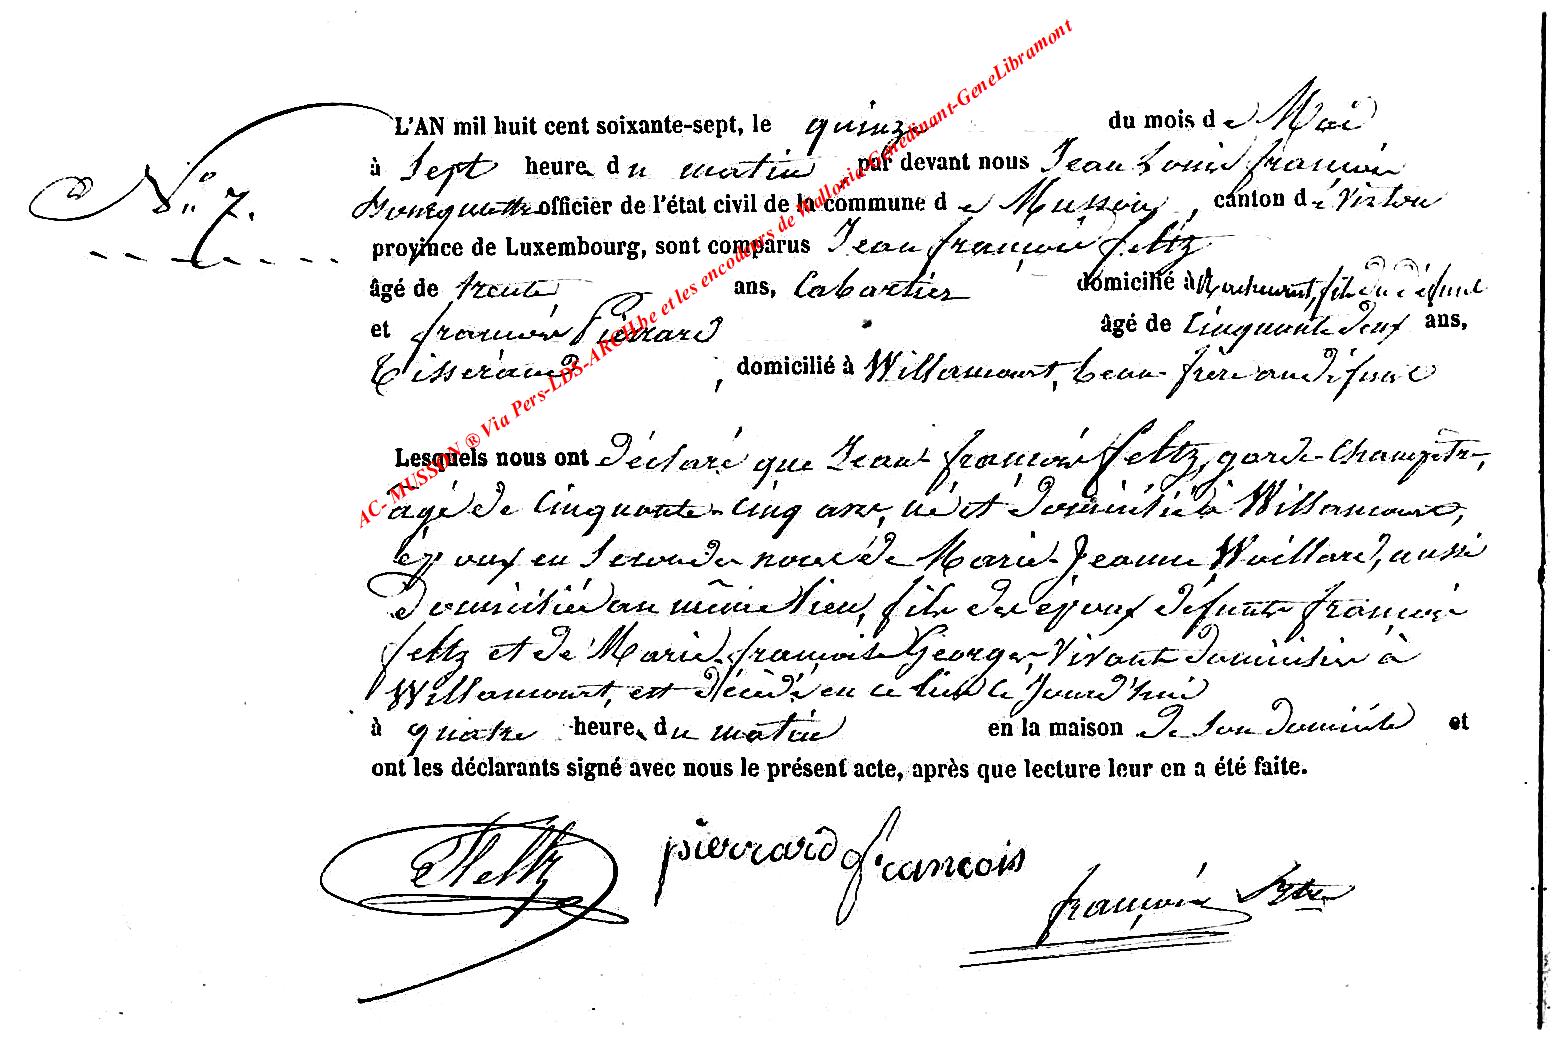 L'AN mil huit cent soixante-sept, le quinze du mois de Mai
N.º 7.
à Sept heures du matin, par devant nous Jean Louis françois
officier de l'état civil de la commune de Musson, canton de Virton
province de Luxembourg, sont comparus Jean françois feltz
âgé de trente ans, Cabartier domicilié à fils du défunt
et françois Pierrard âgé de Cinquante deux ans,
Tisserand, domicilié à Willancourt, beau-frère au défunt
Lesquels nous ont déclaré que Jean françois feltz, garde-Champêtre,
âgé de Cinquante-Cinq ans, né et domicilié à Willancourt,
époux en Secondes noces de Marie-Jeanne Waillard, aussi
domiciliée au même lieu, fils des époux défunts françois
feltz et de Marie-françoise Georges, vivants domiciliés à
Willancourt, est décédé en ce lieu ce jourd'hui
à quatre heures du matin en la maison de Son domicile et
ont les déclarants signé avec nous le présent acte, après que lecture leur en a été faite.
Feltz pierrard françois
françois
AC-MUSSON ® Via Pers-LDS-ARCH.be et les encodeurs de Wallonia-Genedinant-GeneLibramont